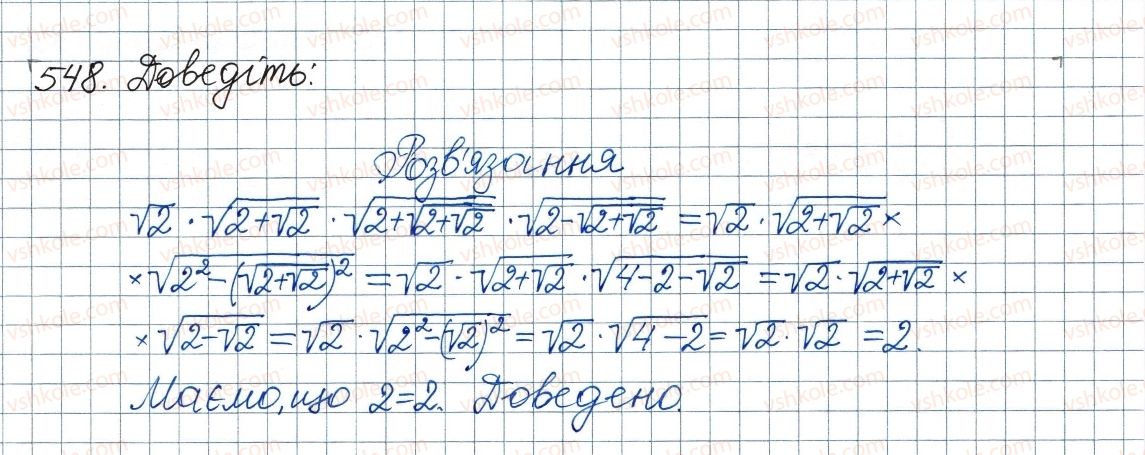 548. Доведіть:
Розв'язання
√2 · √(2+√2) · √(2+√(2+√2)) · √(2-√(2+√2)) = √2 · √(2+√2) ×
× √(2²-(√(2+√2))²) = √2 · √(2+√2) · √(4-2-√2) = √2 · √(2+√2) ×
× √(2-√2) = √2 · √(2²-(√2)²) = √2 · √(4-2) = √2 · √2 = 2.
Маємо, що 2=2. Доведено.